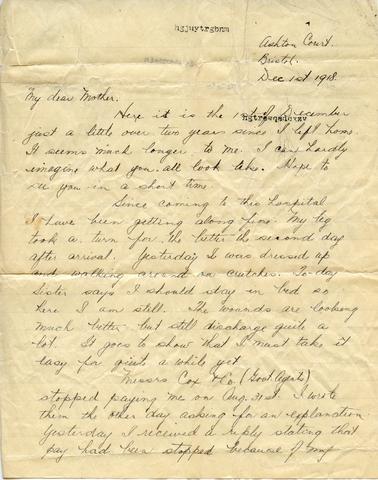 hgjuytrgbnm
Ashton Court.
Bristol.
Dec 1st 1918.
My dear Mother.
Here it is the 1st of December
just a little over two years since I left home.
It seems much longer to me. I can hardly
imagine what you all look like. Hope to
see you in a short time.
Since coming to this hospital
I have been getting along fine. My leg
took a turn for the better the second day
after arrival. Yesterday I was dressed up
and walking around on crutches. To-day
Sister says I should stay in bed so
here I am still. The wounds are looking
much better but still discharge quite a
lot. It goes to show that I must take it
easy for quite a while yet.
Messrs Cox & Co. (Govt. Agents)
stopped paying me on Aug. 31st. I wrote
them the other day asking for an explanation.
Yesterday I received a reply stating that
pay had been stopped because of my